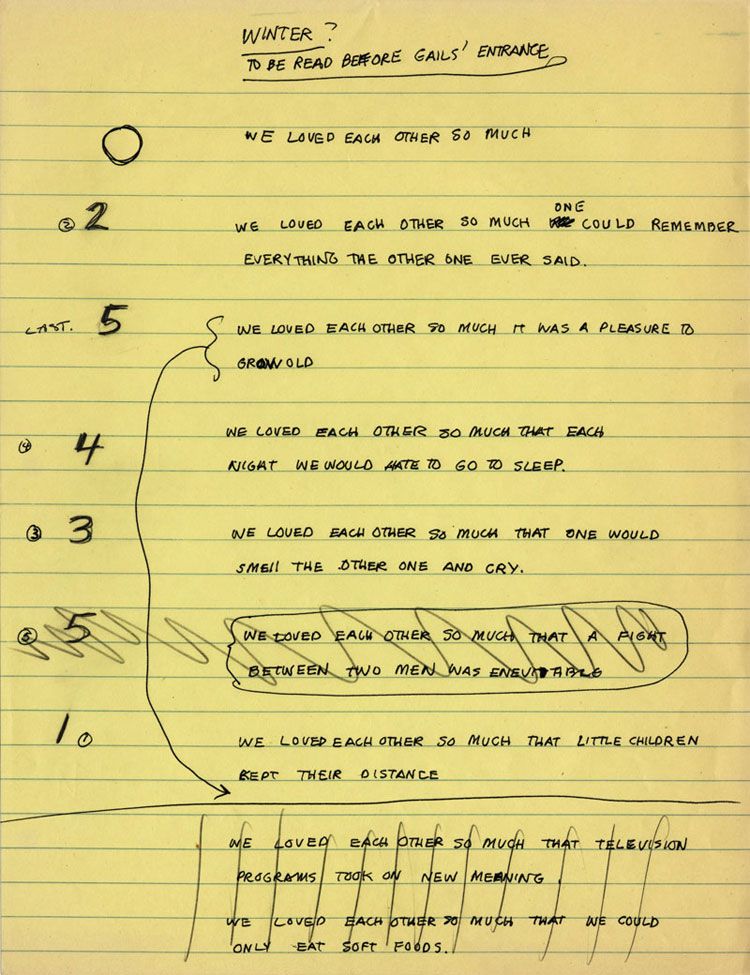 WINTER?
TO BE READ BEFORE GAILS' ENTRANCE
WE LOVED EACH OTHER SO MUCH
② 2 WE LOVED EACH OTHER SO MUCH ONE COULD REMEMBER
EVERYTHING THE OTHER ONE EVER SAID.
LAST. 5 WE LOVED EACH OTHER SO MUCH IT WAS A PLEASURE TO
GROW OLD
④ 4 WE LOVED EACH OTHER SO MUCH THAT EACH
NIGHT WE WOULD HATE TO GO TO SLEEP.
③ 3 WE LOVED EACH OTHER SO MUCH THAT ONE WOULD
SMEll THE OTHER ONE AND CRY.
⑤ 5 WE LOVED EACH OTHER SO MUCH THAT A FIGHT
BETWEEN TWO MEN WAS ENEVITABLE
1 ① WE LOVED EACH OTHER SO MUCH THAT LITTLE CHILDREN
KEPT THEIR DISTANCE
WE LOVED EACH OTHER SO MUCH THAT TELEVISION
PROGRAMS TOOK ON NEW MEANING.
WE LOVED EACH OTHER SO MUCH THAT WE COULD
ONLY EAT SOFT FOODS.